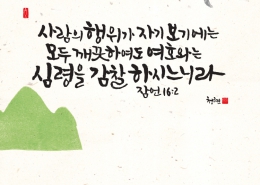 사람의 행위가 자기 보기에는
모두 깨끗하여도 여호와는
심령을 감찰 하시느니라
잠언 16:2